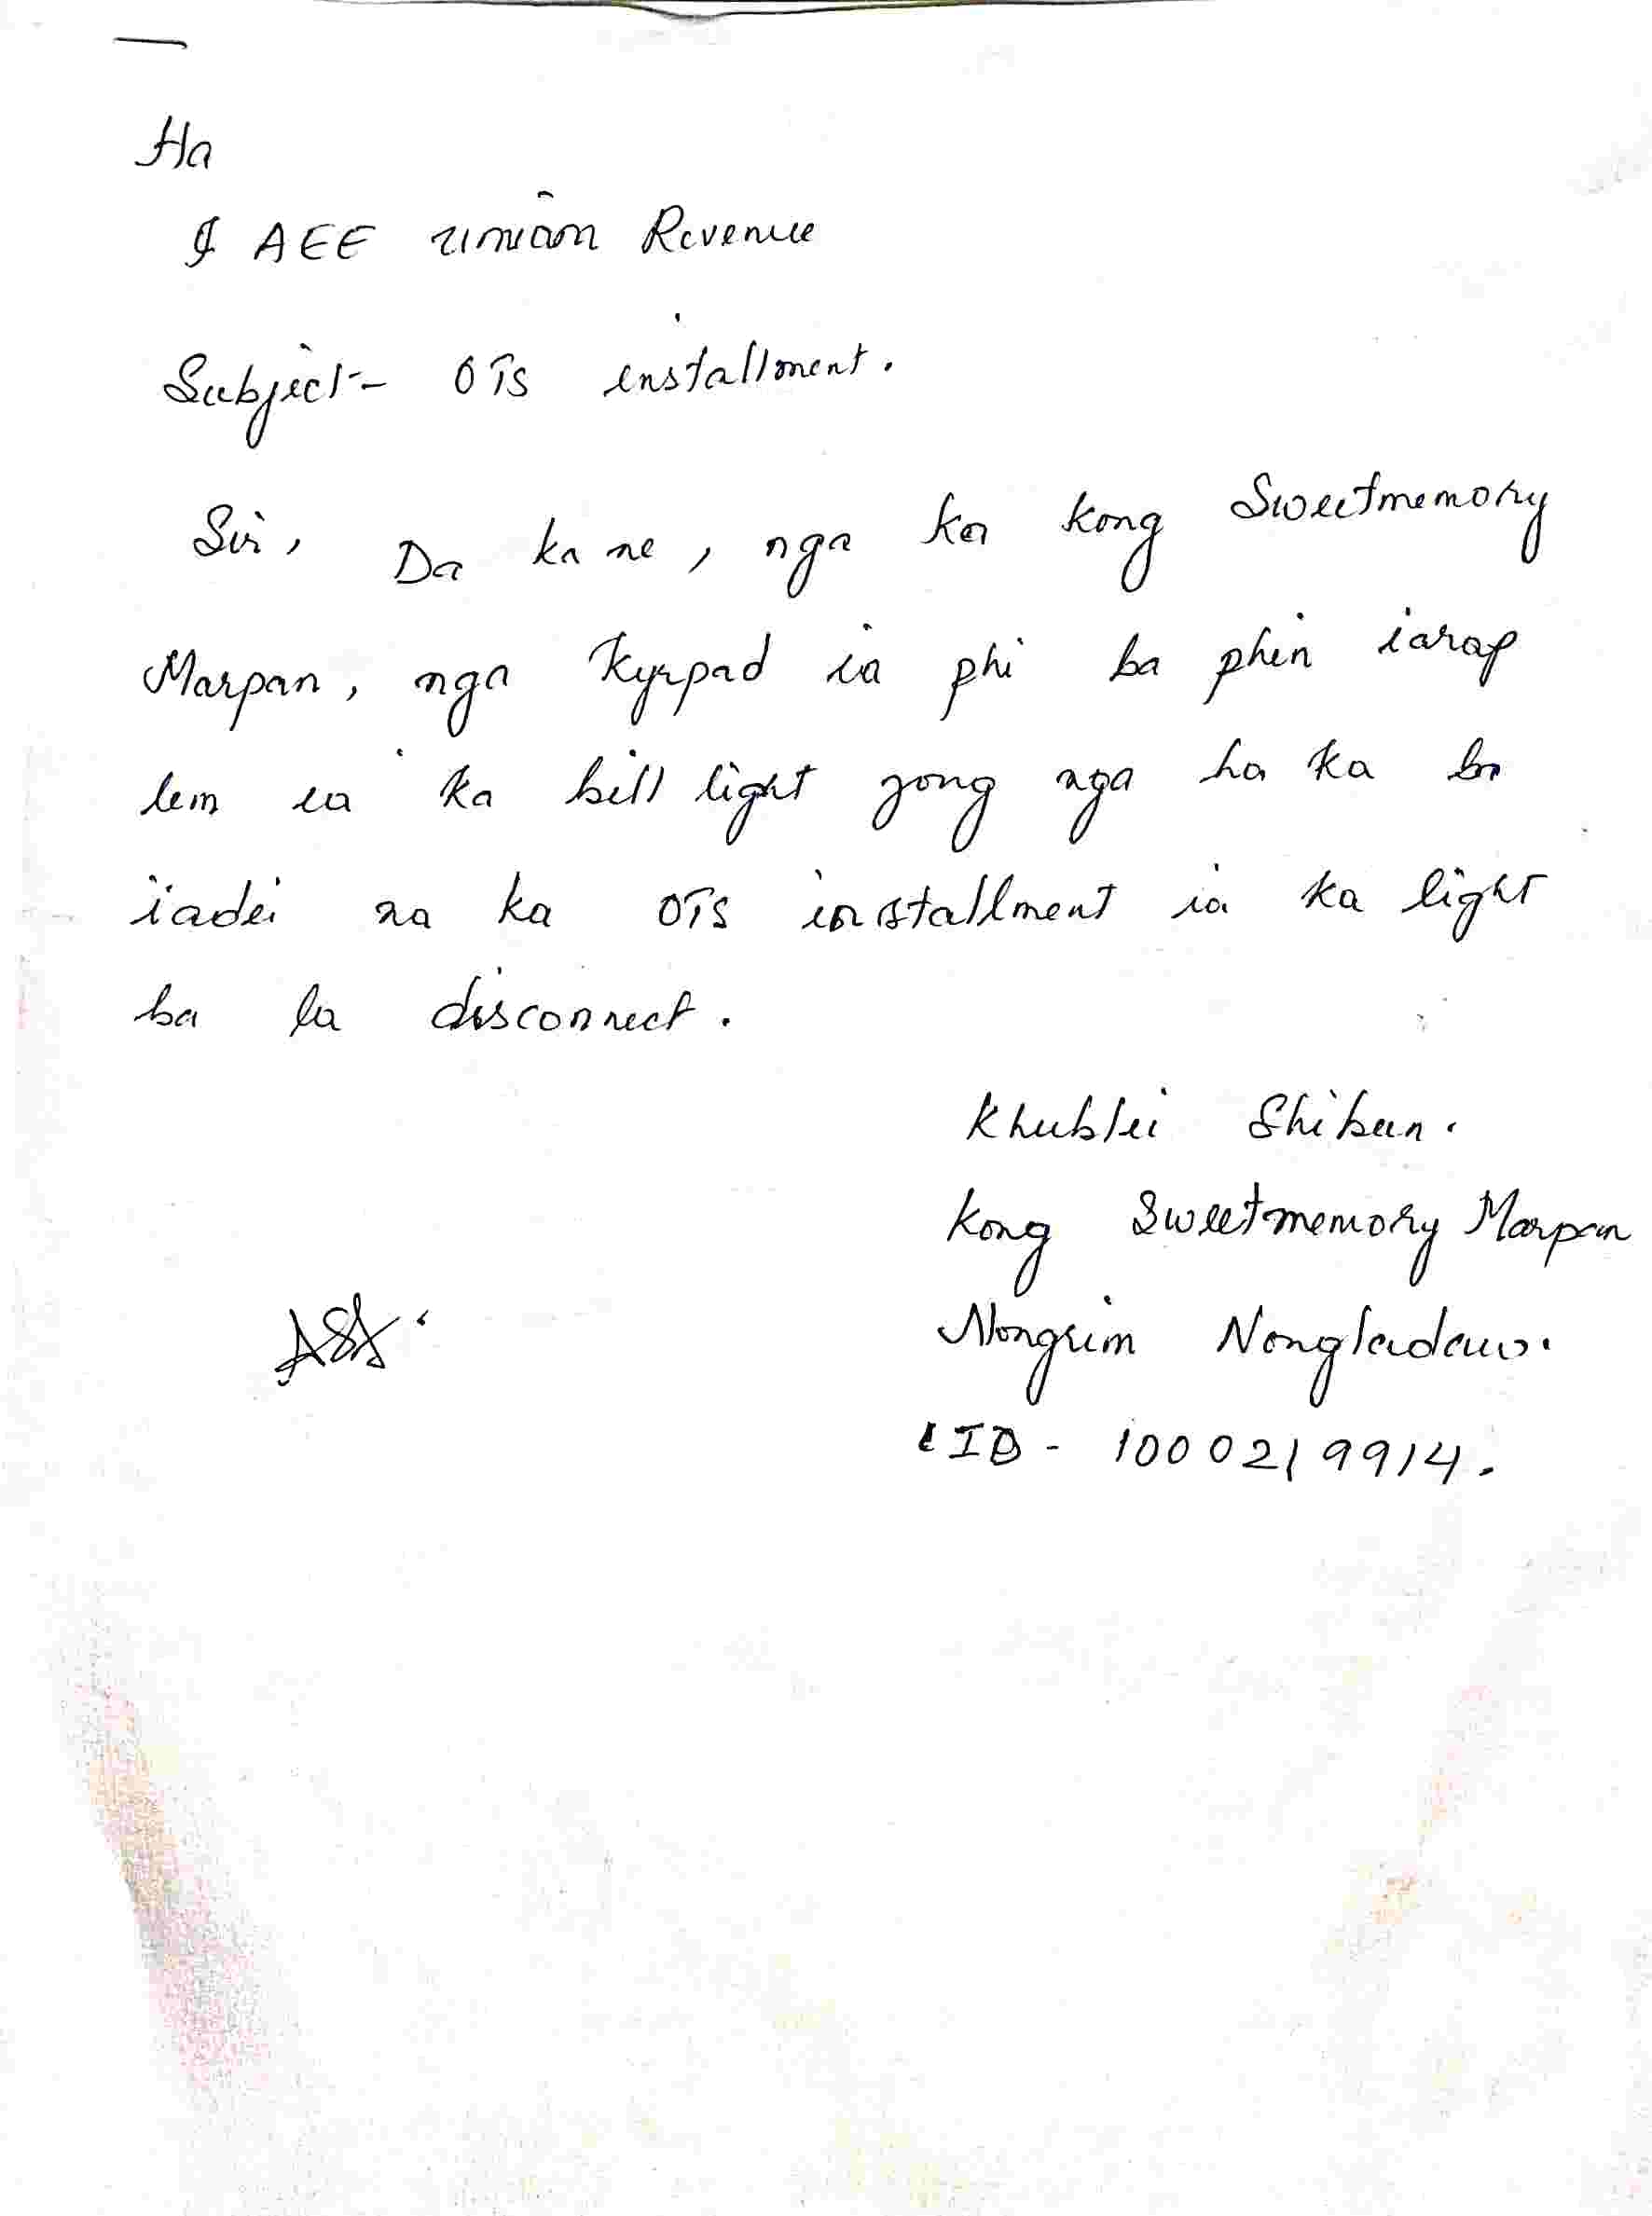 Ha
U AEE Umiam Revenue
Subject- OTS installment.
Sir, Da ka ne, nga ka kong Sweetmemory
Marpan, nga Kyrpad ia phi ba phin iarap
lem ia ka bill light jong nga ha ka ba
iadei na ka OTS installment ia ka light
ba la disconnect.
Khublei Shibun.
Kong Sweetmemory Marpan
Nongrim Nongladaw.
CID - 1000219914.